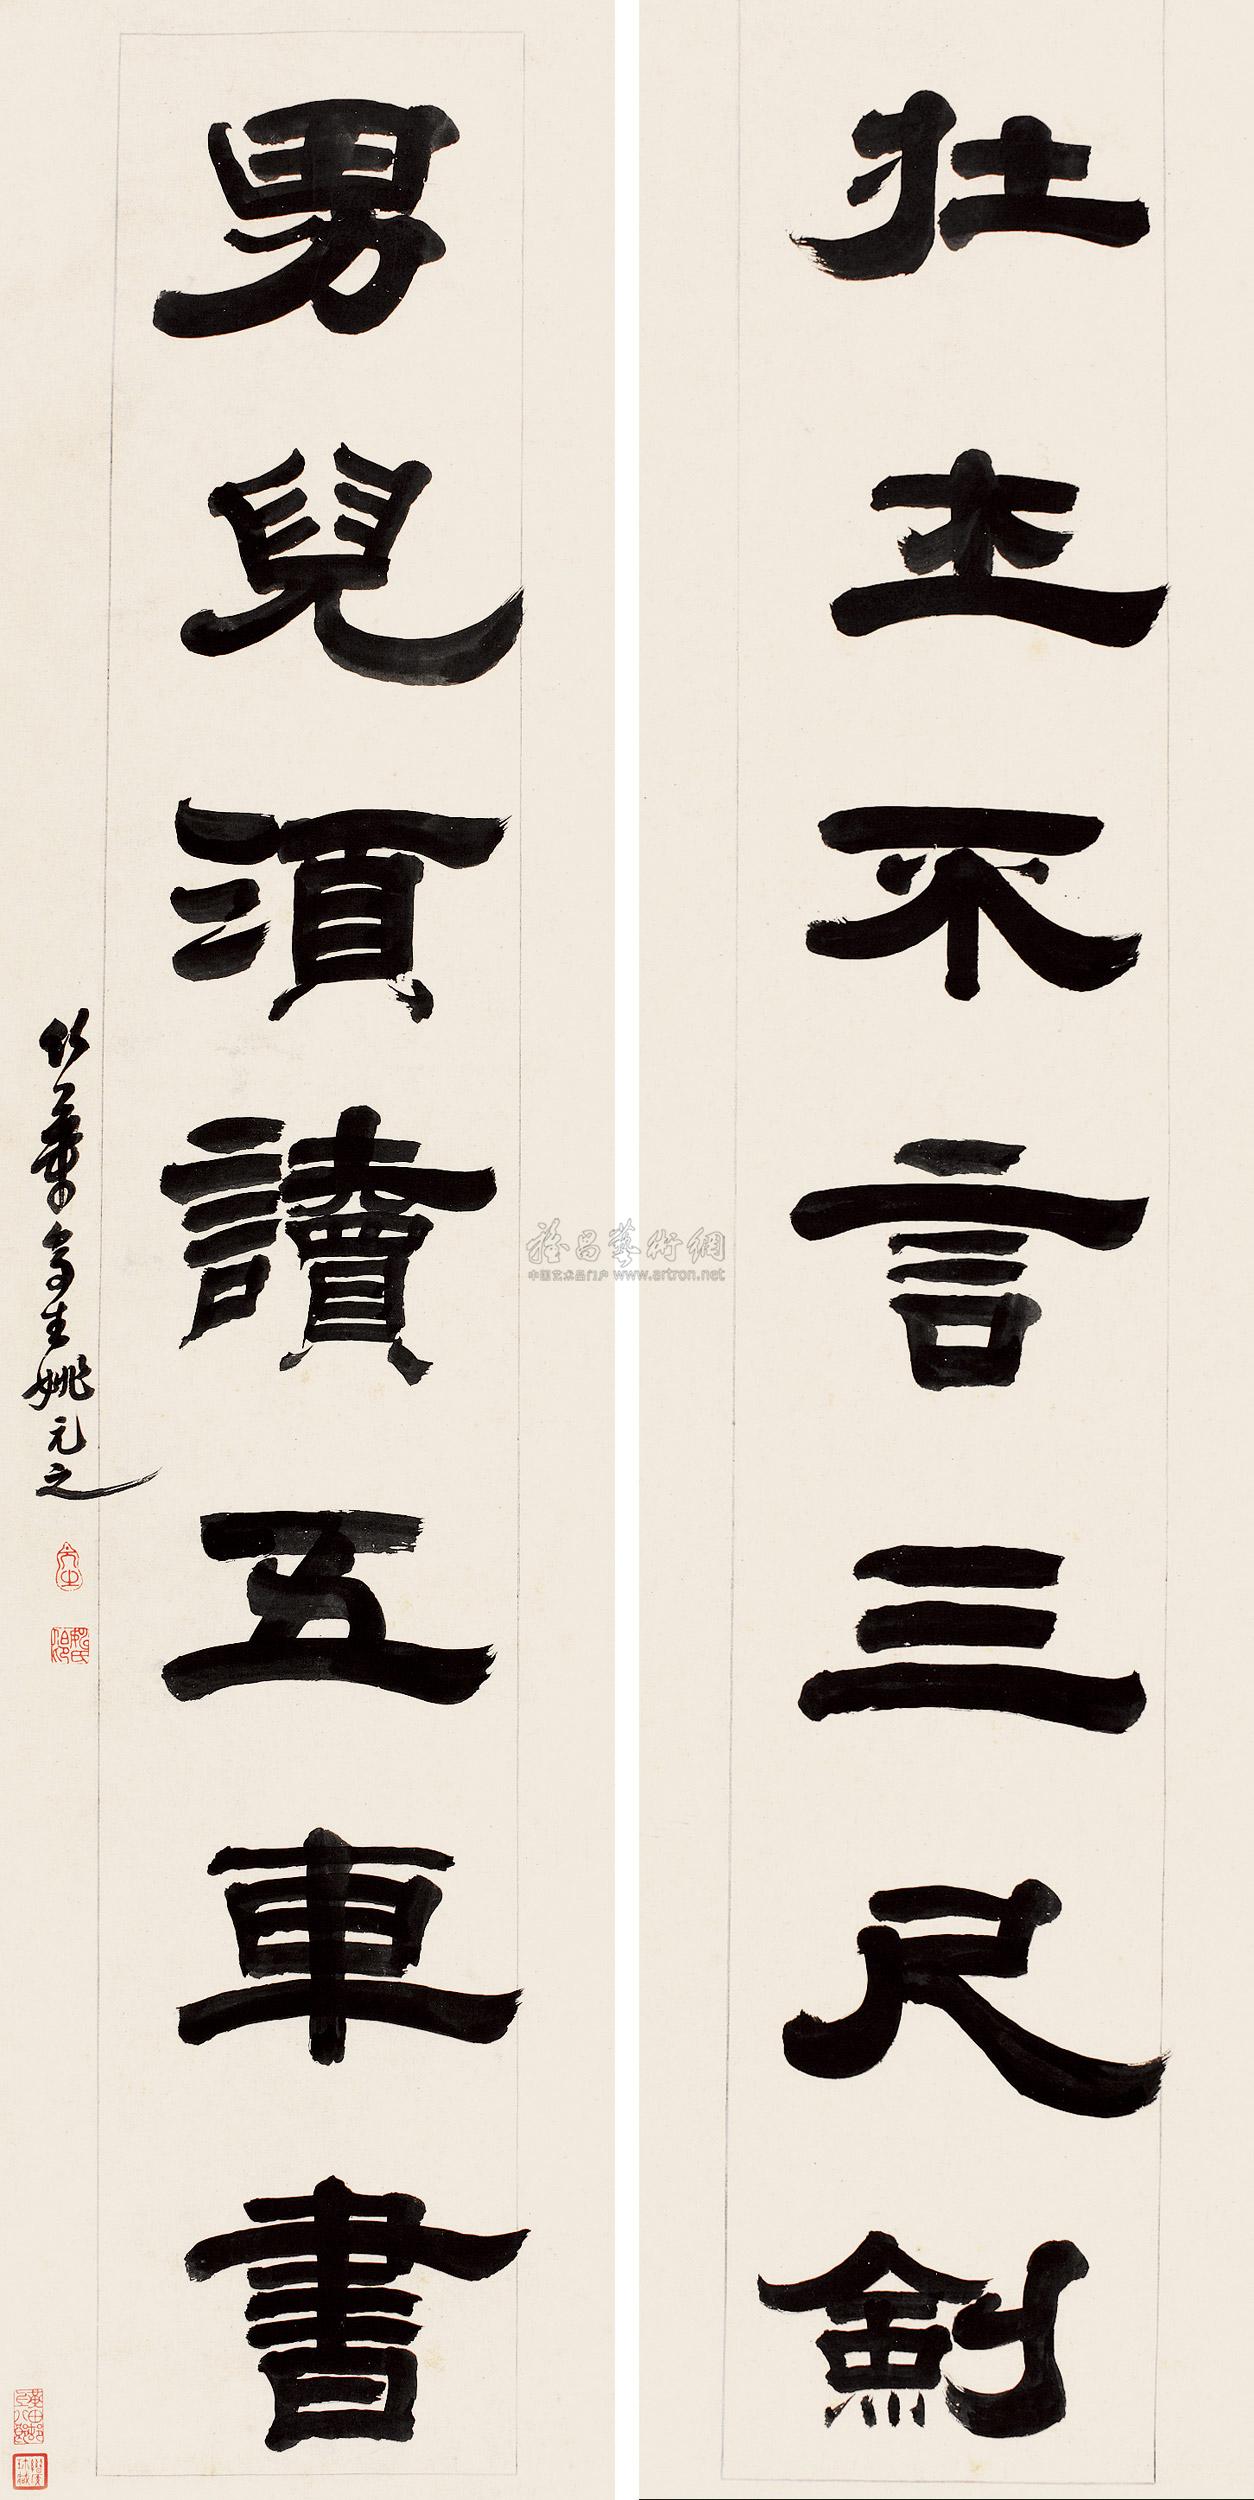 壯士不言三尺劍
男兒須讀五車書
竹葉亭生姚元之
雅昌藝術網
中国艺术品门户 www.artron.net